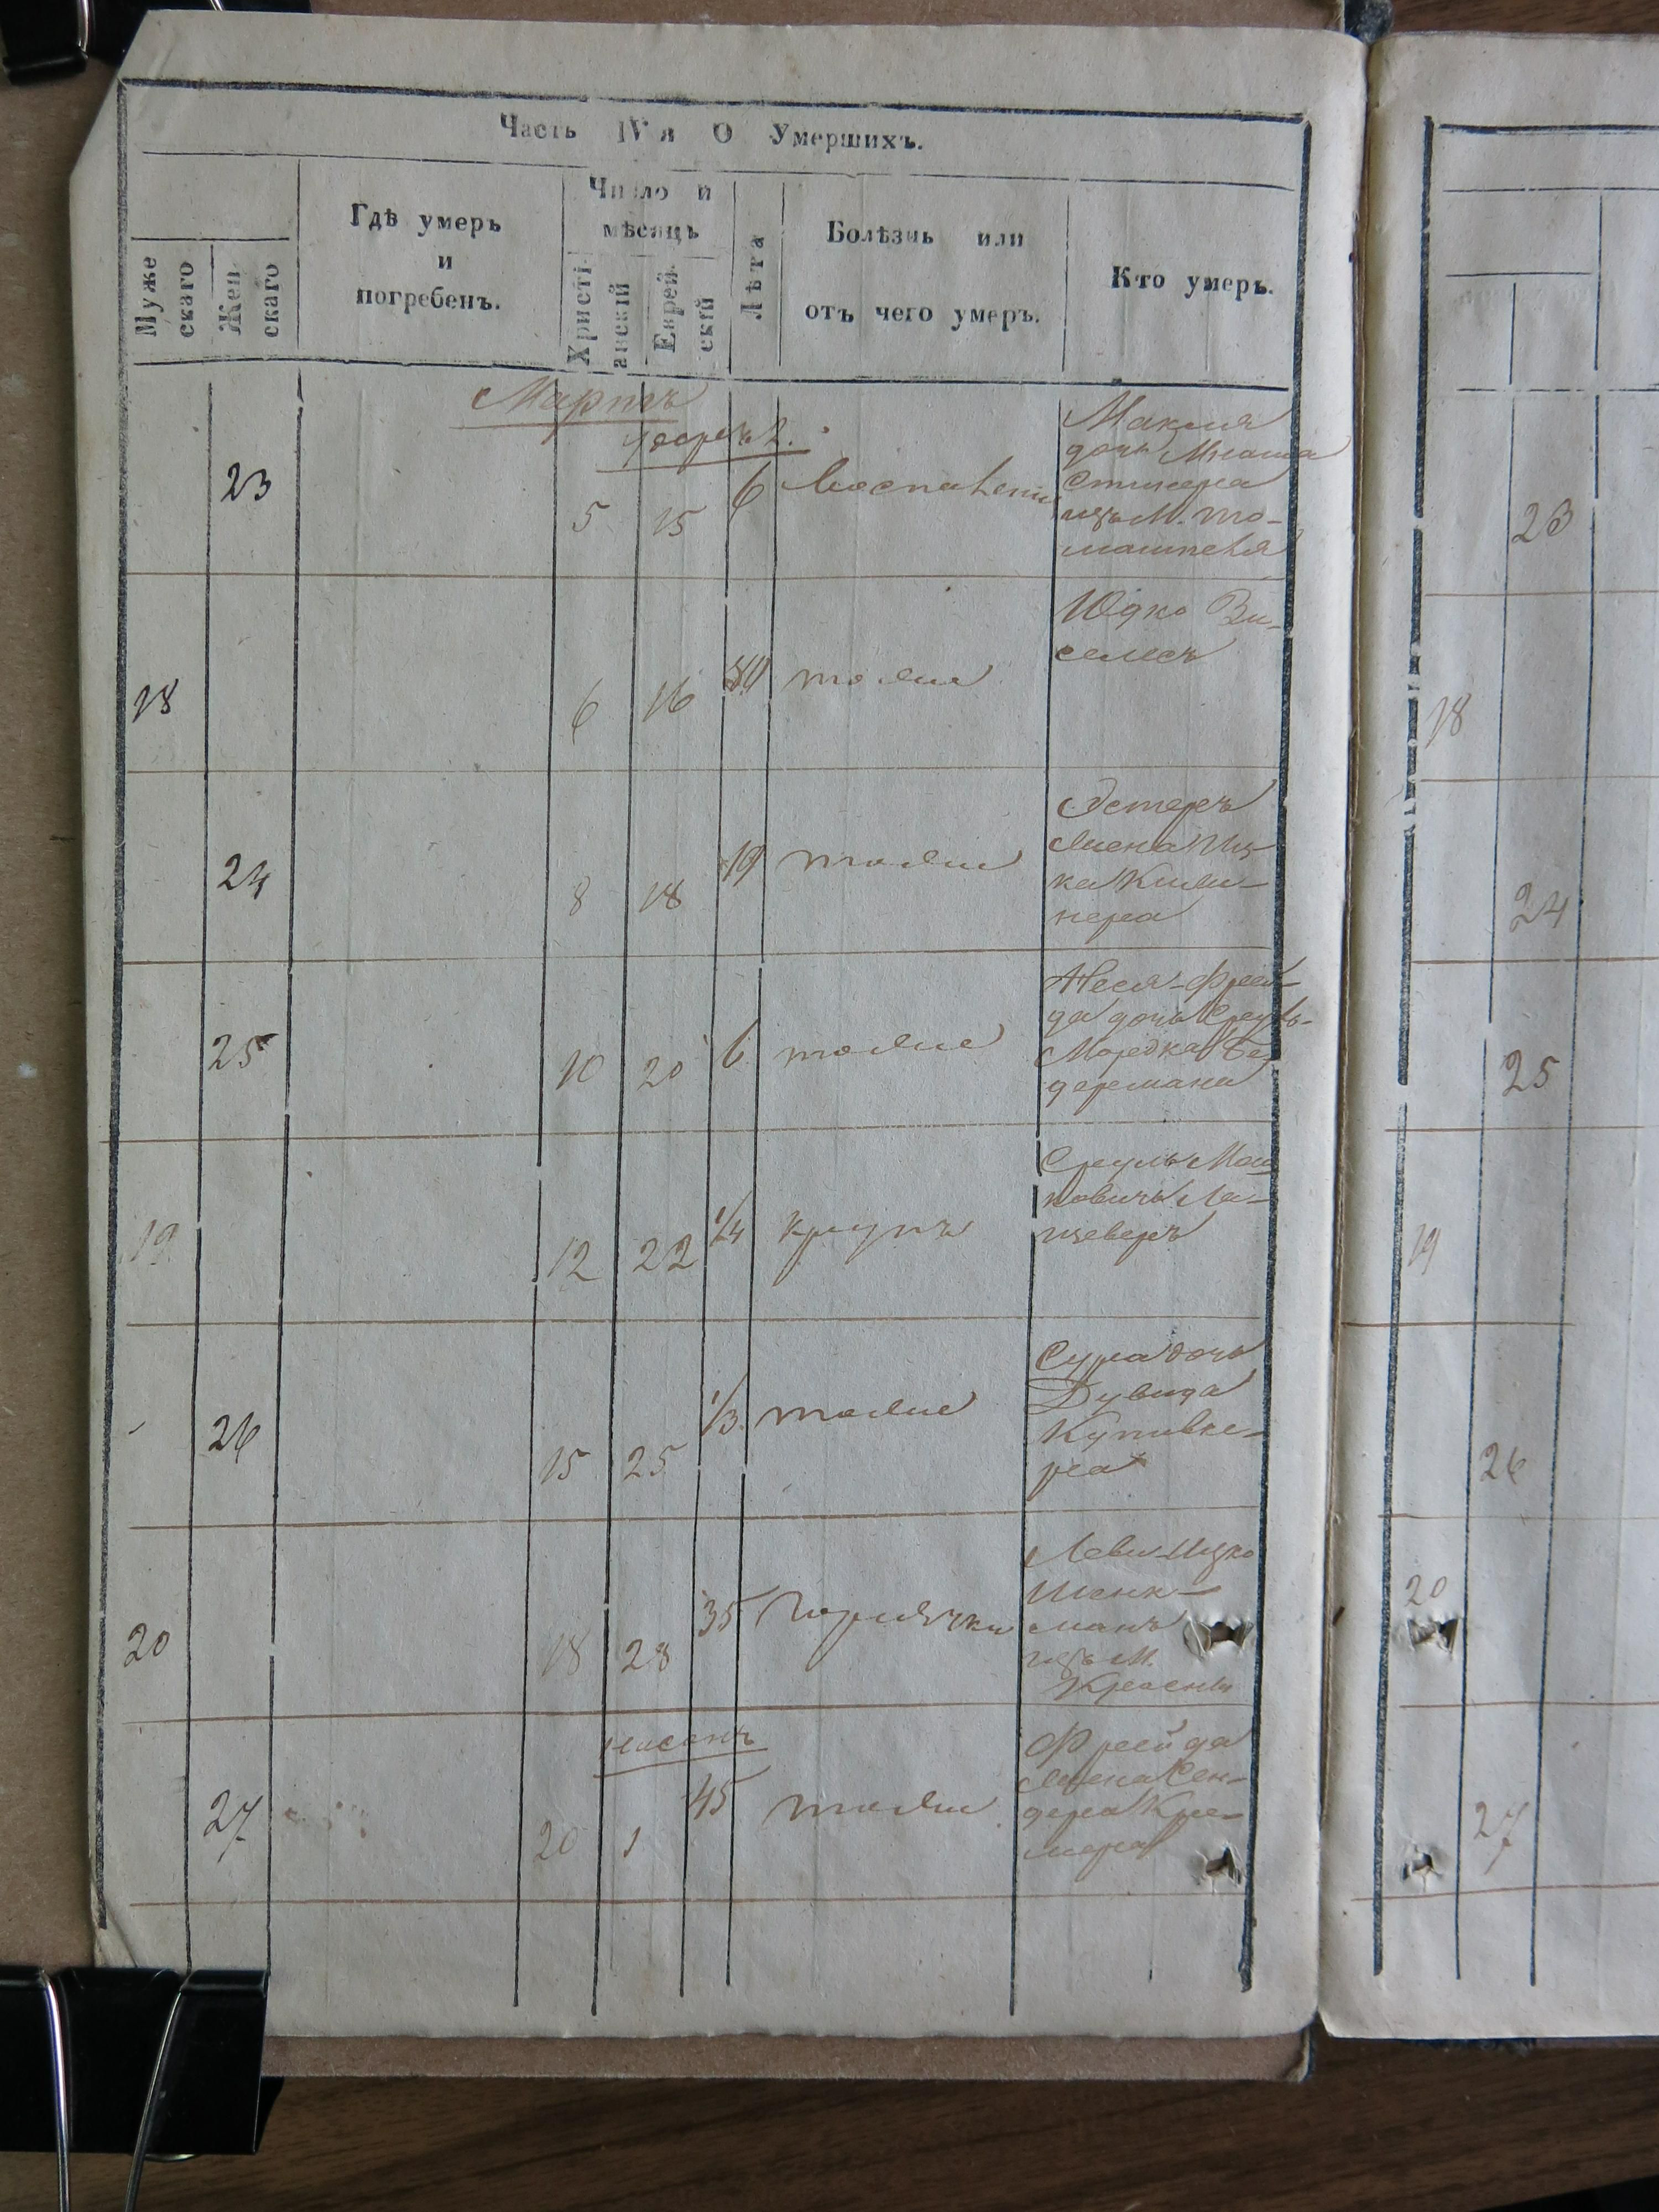 Часть IV я О Умершихъ.
Муже
скаго
Жен
скаго
Гдѣ умеръ
и
погребенъ.
Число и
мѣсяцъ
Христі-
анскій
Еврей-
скій
Лѣта
Болѣзнь или
отъ чего умеръ.
Кто умеръ.
Мартъ
23
5
15
6
воспаленіе
дочь
изъ М. То-
машполя
18
6
16
тоже
Юдко
24
8
18
19
тоже
Эстеръ
жена Иц-
ка
25
10
20
6
тоже
Неся-Фрей-
да дочь Сруль-
Мордка Бе-
дермана
19
12
22
1/4
крупъ
Сруль Мош
ковичъ
26
15
25
1/3
тоже
Сура дочь
Дувида
20
18
28
35
Горячки
Леви-Ицко
Шенк-
манъ
изъ М.
Красни
нисанъ
27
20
1
45
тоже
Фрейда
жена Сен-
дера Кре-
мера
23
18
24
25
19
26
20
27